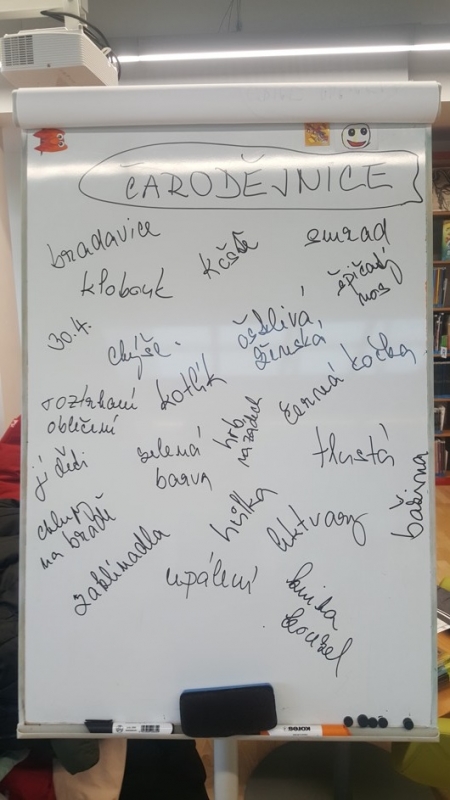 ČARODĚJNICE
bradavice
klobouk
koště
smrad
špičatý
nos
30.4.
chýše
ošklivá
ženská
černá kočka
roztrhané
oblečení
kotlík
jí děti
zelená
barva
hrb
na zádech
tlustá
bažina
chlup
na bradě
zaklínadla
hůlka
lektvary
upálení
kniha
kouzel
KORES